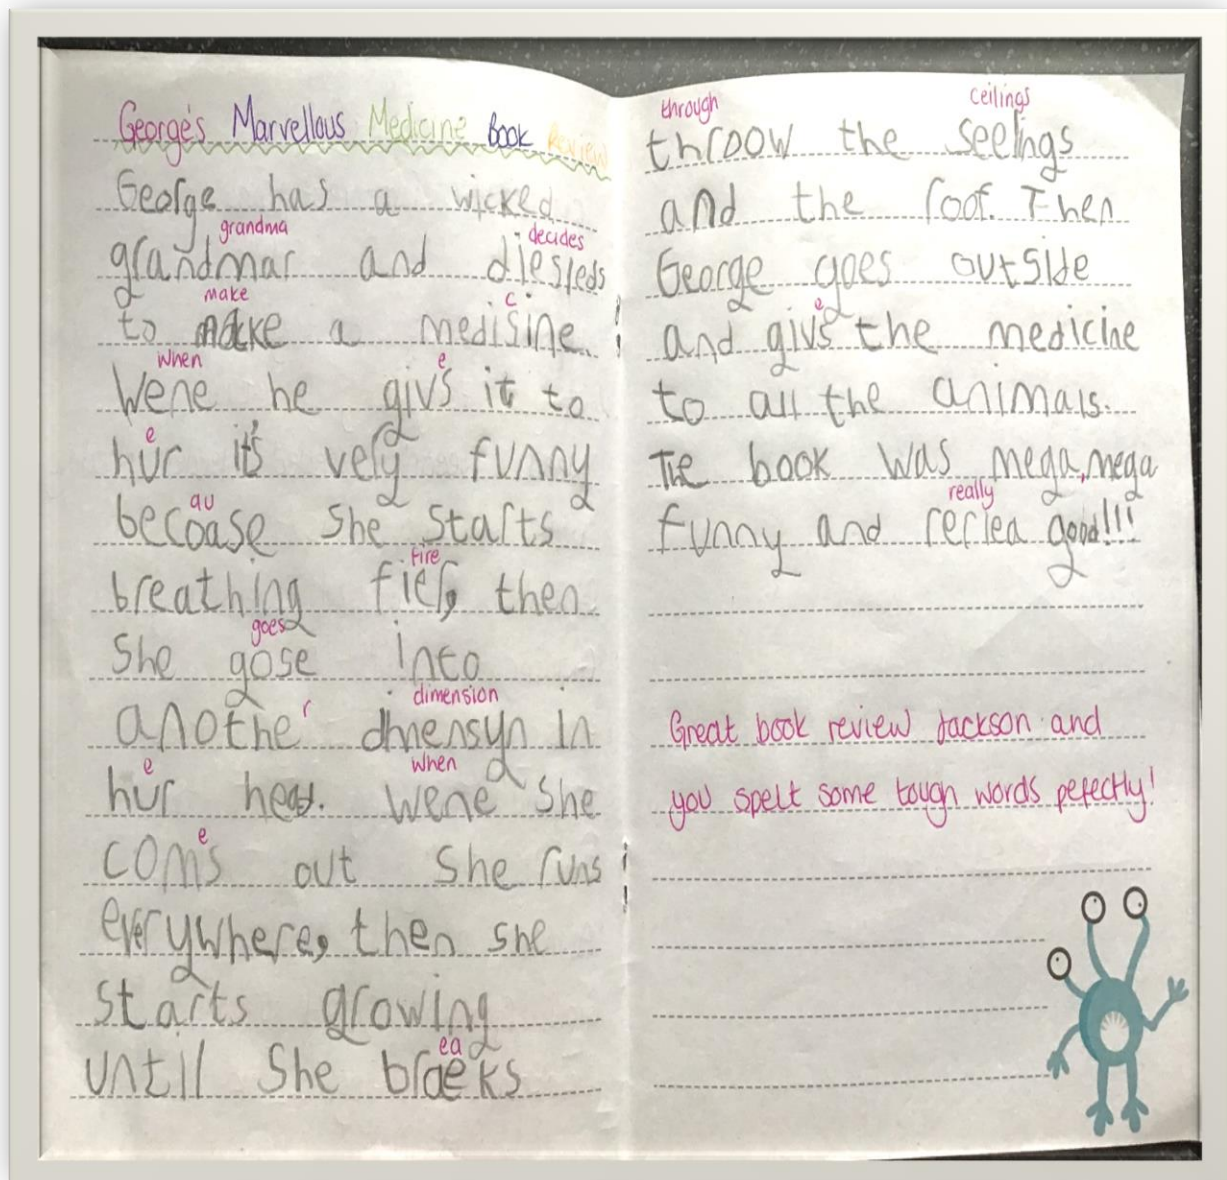 George's Marvellous Medicine Book Review
George has a wicked
grandma decides
grandmar and diesieds
make c
to make a medisine.
when e
Wene he givs it to
e
hur it's very funny
au
becoase she starts
fire
breathing fier, then
goes
She gose into
r dimension
anothe dmensyn in
e when
hur head. Wene she
e
coms out she runs
everywhere, then she
starts growing
ea
until She braeks
through ceilings
throow the seelings
and the roof. Then
George goes outside
e
and givs the medicine
to all the animals.
The book was mega, mega
really
funny and rerlea good!!!
Great book review Jackson and
you spelt some tough words pefectly!